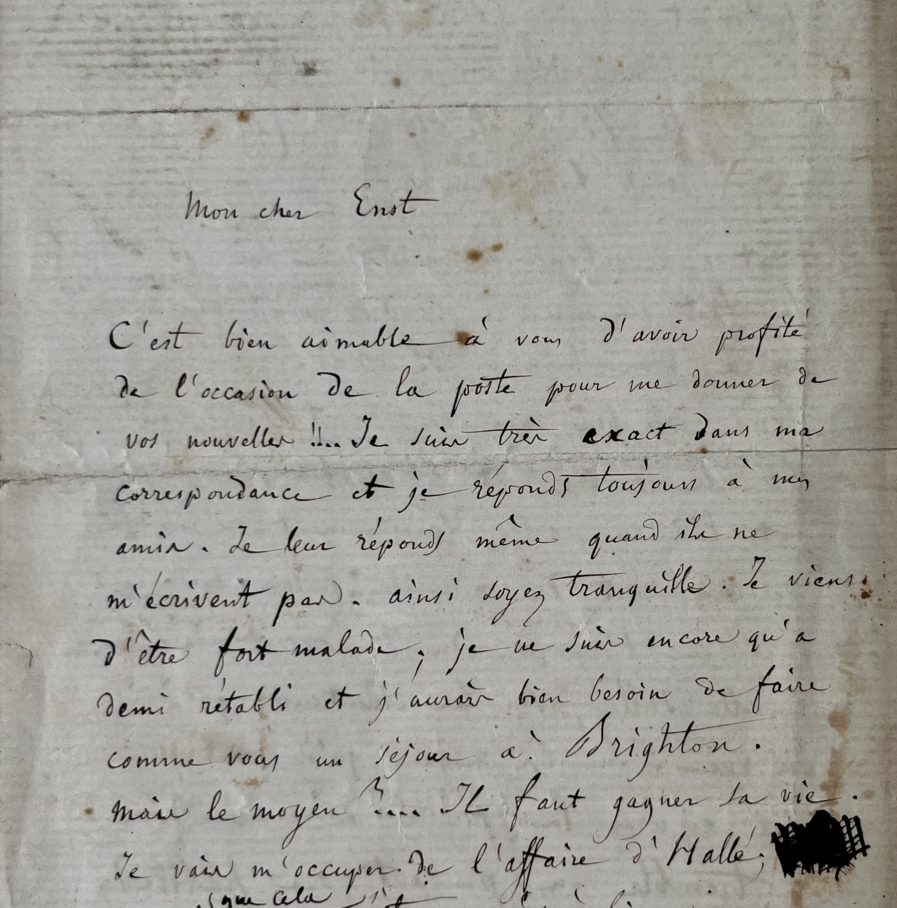 Mon cher Enst
C'est bien aimable à vous d'avoir profité
de l'occasion de la poste pour me donner de
vos nouvelles !!.. Je suis très exact dans ma
correspondance et je réponds toujours à mes
amis. Je leur réponds même quand ils ne
m'écrivent pas. ainsi soyez tranquille. Je viens
d'être fort malade; je ne suis encore qu'a
demi rétabli et j'aurais bien besoin de faire
comme vous un séjour à Brighton.
mais le moyen ?.... Il faut gagner sa vie.
Je vais m'occuper de l'affaire d'Hallé;
que cela